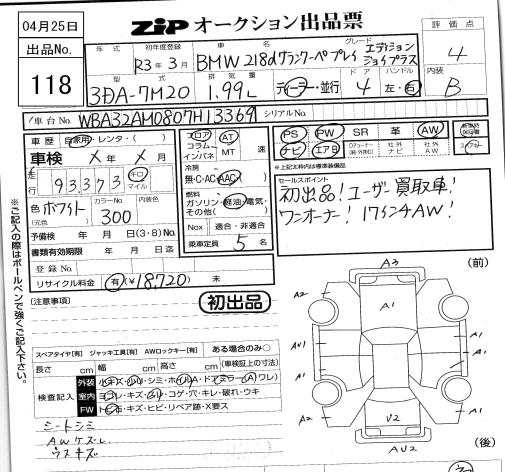 04月25日
ZIP オークション出品票
評価点
4
出品No.
118
年式
初年度登録
R3年3月
車名
BMW 218dグランクーペ プレイ
グレード
エディション
ジョイプラス
内装
B
型式
3DA-7M20
排気量
1.99L
ディーラー・並行
ドア
4
ハンドル
左・右
車台No.
WBA32AM0807H13369
シリアルNo.
車歴
自家用・レンタ・( )
車検
X年X月
走行
93373
キロ
マイル
色
ホワイト
(元色 )
カラーNo.
300
内装色
予備検 年 月 日(3・8)No.
書類有効期限 年 月 日迄
登録No.
リサイクル料金 有(¥18,720)未
フロア
コラム
インパネ
AT
MT
速
冷房
無・C・AC・AAC
燃料
ガソリン・軽油・電気・
その他( )
Nox 適合・非適合
乗車定員 5名
PS PW SR 革 AW
ナビ エアB
社外
ナビ
社外
AW
※上記太枠内は標準装備品
セールスポイント
初出品!ユーザー買取車!
ワンオーナー!17インチAW!
※ご記入の際はボールペンで強くご記入下さい。
(注意事項)
初出品
スペアタイヤ[有] ジャッキ工具[有] AWロックキー[有] ある場合のみ○
長さ cm 幅 cm 高さ cm (車検証上の寸法)
検査記入
外装
室内
コゲ・穴・キレ・破れ・ウキ
FW
トビ石・キズ・ヒビ・リペア跡・X要ス
シートシミ
AWケズレ
ウスキズ
A3
(前)
A2
A1
A2
AU1
A1
A1
A1
A1
A2
U2
A2
AU2
(後)